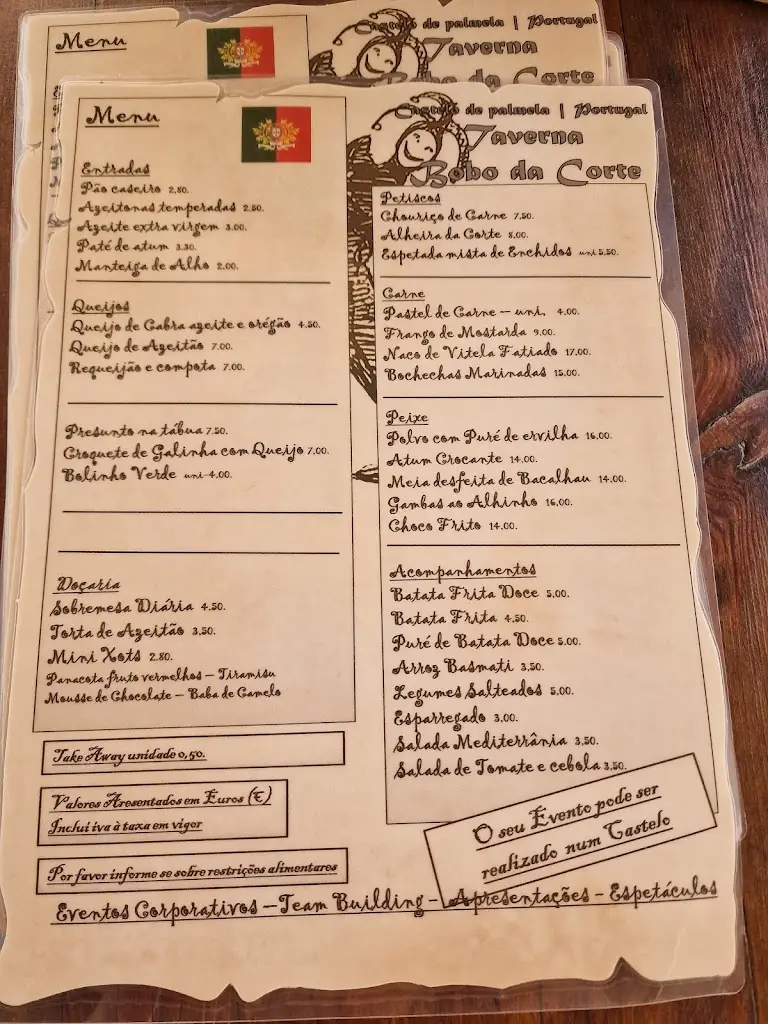 Menu
Castelo de palmela | Portugal
Taverna
Bobo da Corte
Menu
Castelo de palmela | Portugal
Taverna
Bobo da Corte
Entradas
Pão caseiro 2,80.
Azeitonas temperadas 2,50.
Azeite extra virgem 3,00.
Paté de atum 3,30.
Manteiga de Alho 2,00.
Queijos
Queijo de Cabra azeite e orégão 4,50.
Queijo de Azeitão 7,00.
Requeijão e compota 7,00.
Presunto na tábua 7,50.
Croquete de Galinha com Queijo 7,00.
Bolinho Verde uni-4,00.
Doçaria
Sobremesa Diária 4,50.
Torta de Azeitão 3,50.
Mini Xots 2,80.
Panacota fruto vermelhos – Tiramisu
Mousse de Chocolate – Baba de Camelo
Take Away unidade 0,50.
Valores Aresentados em Euros (€)
Inclui iva à taxa em vigor
Por favor informe se sobre restrições alimentares
Petiscos
Chouriço de Carne 7,50.
Alheira da Corte 8,00.
Espetada mista de Enchidos uni 5,50.
Carne
Pastel de Carne – uni. 4,00.
Frango de Mostarda 9,00.
Naco de Vitela Fatiado 17,00.
Bochechas Marinadas 15,00.
Peixe
Polvo com Puré de ervilha 16,00.
Atum Crocante 14,00.
Meia desfeita de Bacalhau 14,00.
Gambas ao Alhinho 16,00.
Choco Frito 14,00.
Acompanhamentos
Batata Frita Doce 5,00.
Batata Frita 4,50.
Puré de Batata Doce 5,00.
Arroz Basmati 3,50.
Legumes Salteados 5,00.
Esparregado 3,00.
Salada Mediterrânia 3,50.
Salada de Tomate e cebola 3,50.
O seu Evento pode ser
realizado num Castelo
Eventos Corporativos – Team Building – Apresentações – Espetáculos